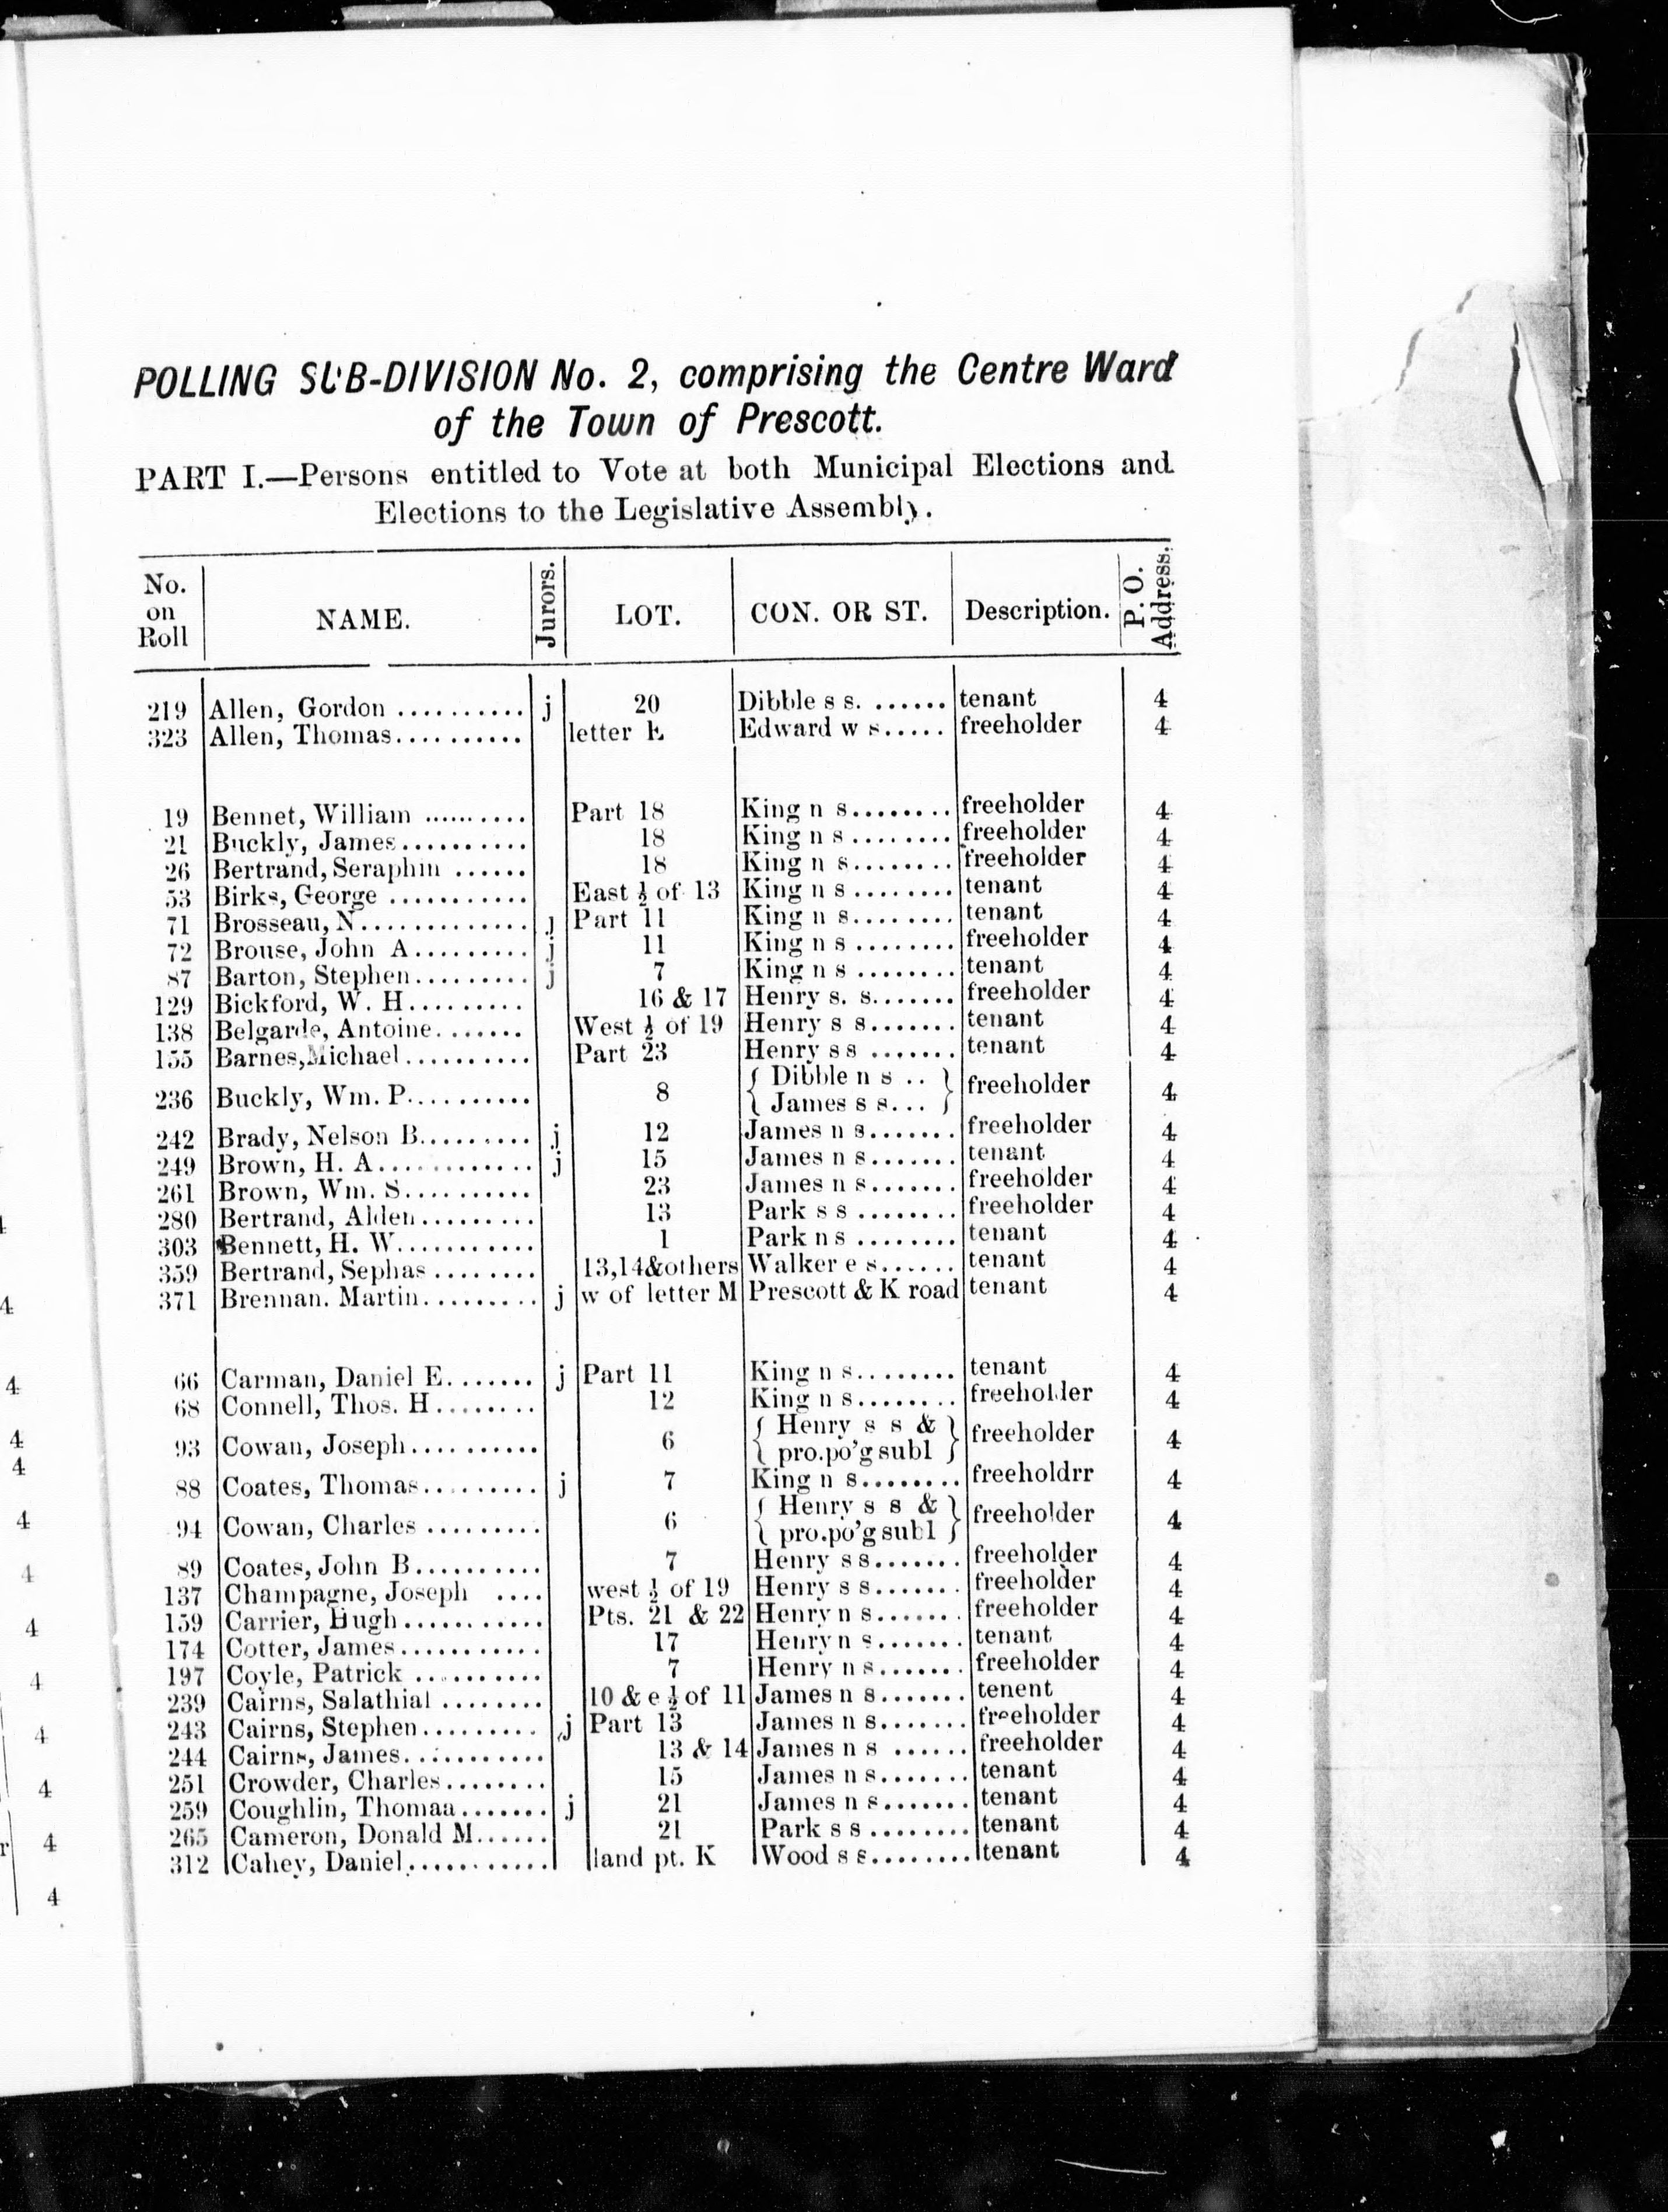 POLLING SUB-DIVISION No. 2, comprising the Centre Ward
of the Town of Prescott.
PART I.—Persons entitled to Vote at both Municipal Elections and
Elections to the Legislative Assembly.
No. on Roll NAME. Jurors. LOT. CON. OR ST. Description. P. O. Address.
219 Allen, Gordon .......... j 20 Dibble s s. ...... tenant 4
323 Allen, Thomas.......... letter Edward w s..... freeholder 4
19 Bennet, William .......... Part 18 King n s........ freeholder 4
21 Buckly, James.......... 18 King n s ........ freeholder 4
26 Bertrand, Seraphin ...... 18 King n s........ freeholder 4
53 Birks, George ........... East ½ of 13 King n s ........ tenant 4
71 Brosseau, N.............. j Part 11 King n s........ tenant 4
72 Brouse, John A......... j 11 King n s ........ freeholder 4
87 Barton, Stephen......... j 7 King n s ........ tenant 4
129 Bickford, W. H......... 16 & 17 Henry s. s....... freeholder 4
138 Belgarde, Antoine....... West ½ of 19 Henry s s....... tenant 4
155 Barnes, Michael.......... Part 23 Henry s s ....... tenant 4
236 Buckly, Wm. P.......... 8 { Dibble n s .. } freeholder 4
{ James s s... }
242 Brady, Nelson B......... j 12 James n s....... freeholder 4
249 Brown, H. A............ j 15 James n s....... tenant 4
261 Brown, Wm. S.......... 23 James n s....... freeholder 4
280 Bertrand, Alden......... 13 Park s s ........ freeholder 4
303 Bennett, H. W........... 1 Park n s ........ tenant 4
359 Bertrand, Sephas ........ 13,14&others Walker e s...... tenant 4
371 Brennan. Martin......... j w of letter M Prescott & K road tenant 4
66 Carman, Daniel E....... j Part 11 King n s........ tenant 4
68 Connell, Thos. H........ 12 King n s........ freeholder 4
93 Cowan, Joseph.......... 6 { Henry s s & } freeholder 4
{ pro.po'g subl }
88 Coates, Thomas......... j 7 King n s........ freeholdrr 4
94 Cowan, Charles ......... 6 { Henry s s & } freeholder 4
{ pro.po'g subl }
89 Coates, John B.......... 7 Henry s s....... freeholder 4
137 Champagne, Joseph .... west ½ of 19 Henry s s....... freeholder 4
159 Carrier, Hugh........... Pts. 21 & 22 Henry n s....... freeholder 4
174 Cotter, James........... 17 Henry n s....... tenant 4
197 Coyle, Patrick .......... 7 Henry n s....... freeholder 4
239 Cairns, Salathial ........ 10 & e ½ of 11 James n s....... tenent 4
243 Cairns, Stephen......... j Part 13 James n s....... freeholder 4
244 Cairns, James........... 13 & 14 James n s ...... freeholder 4
251 Crowder, Charles........ 15 James n s....... tenant 4
259 Coughlin, Thomaa....... j 21 James n s....... tenant 4
265 Cameron, Donald M...... 21 Park s s ........ tenant 4
312 Cahey, Daniel........... land pt. K Wood s s........ tenant 4